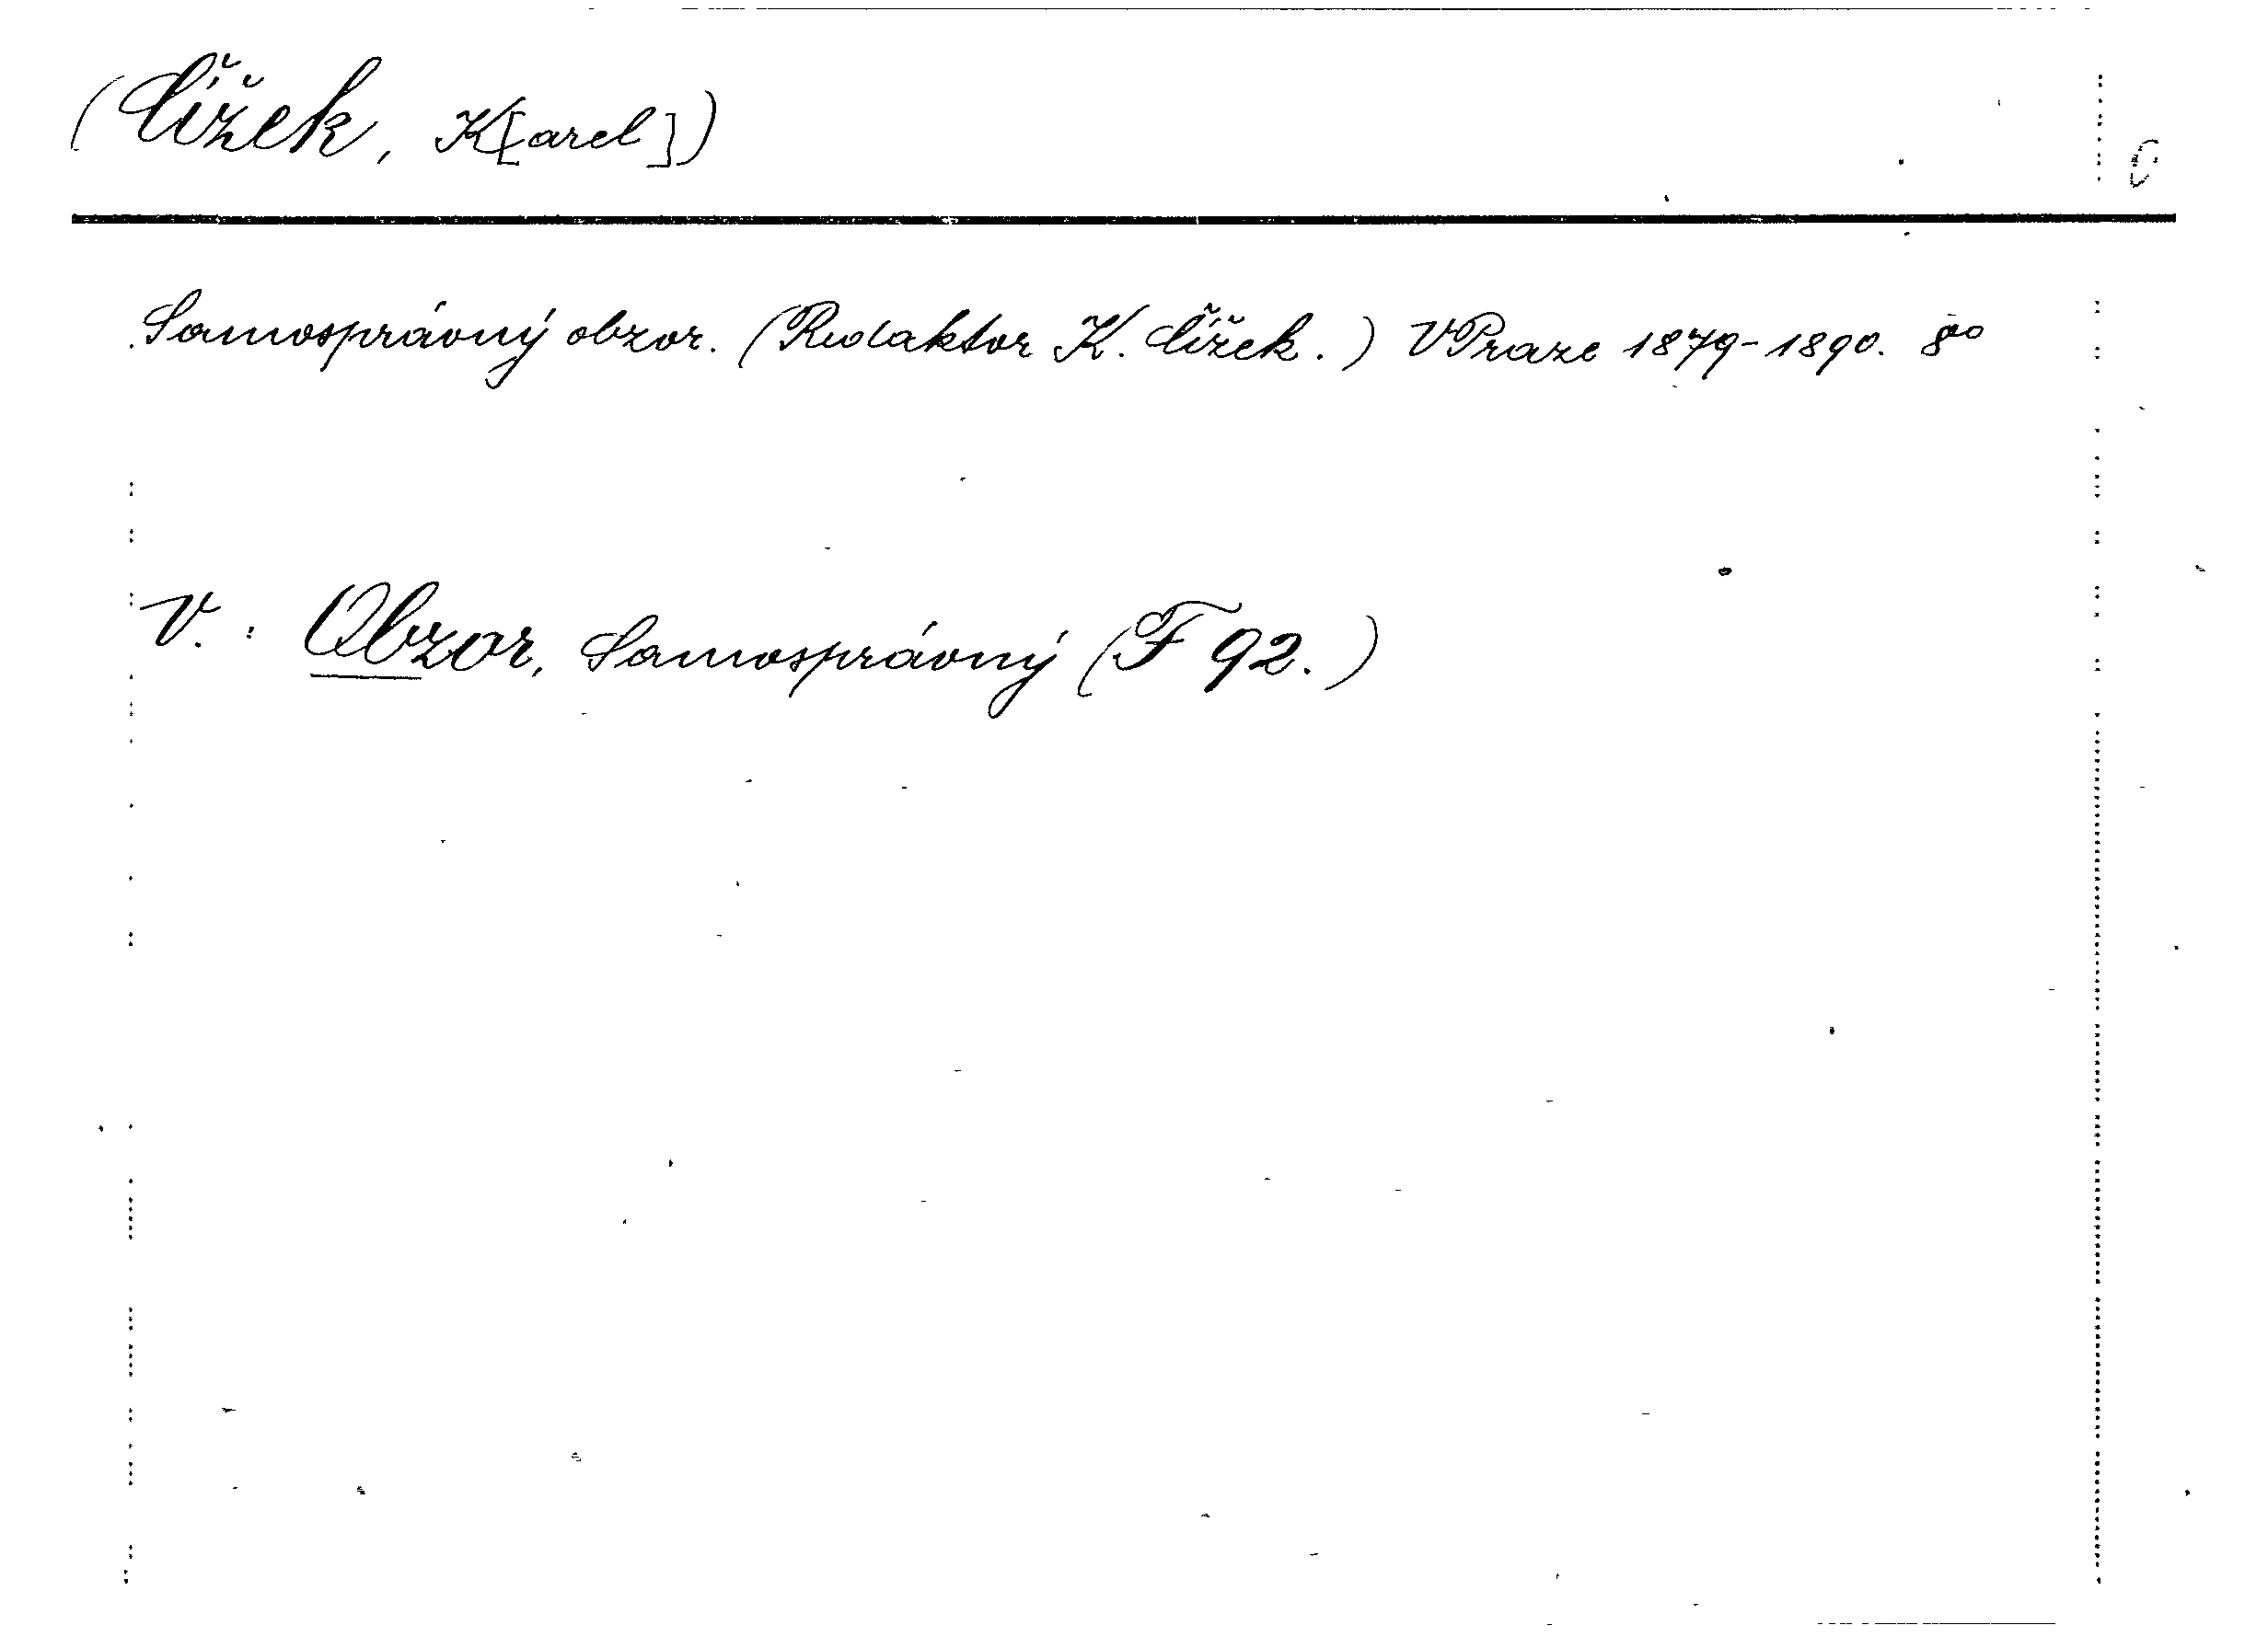 (Čížek, K[arel])
Samosprávný obzor. (Redaktor K. Čížek.) V Praze 1879-1890. 8°
V. : Obzor, Samosprávný (F 92.)